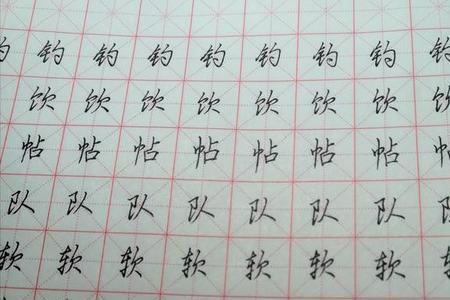 钓钓钓钓钓钓钓
饮饮饮饮饮饮饮
帖帖帖帖帖帖帖
队队队队队队队
软软软软软软软